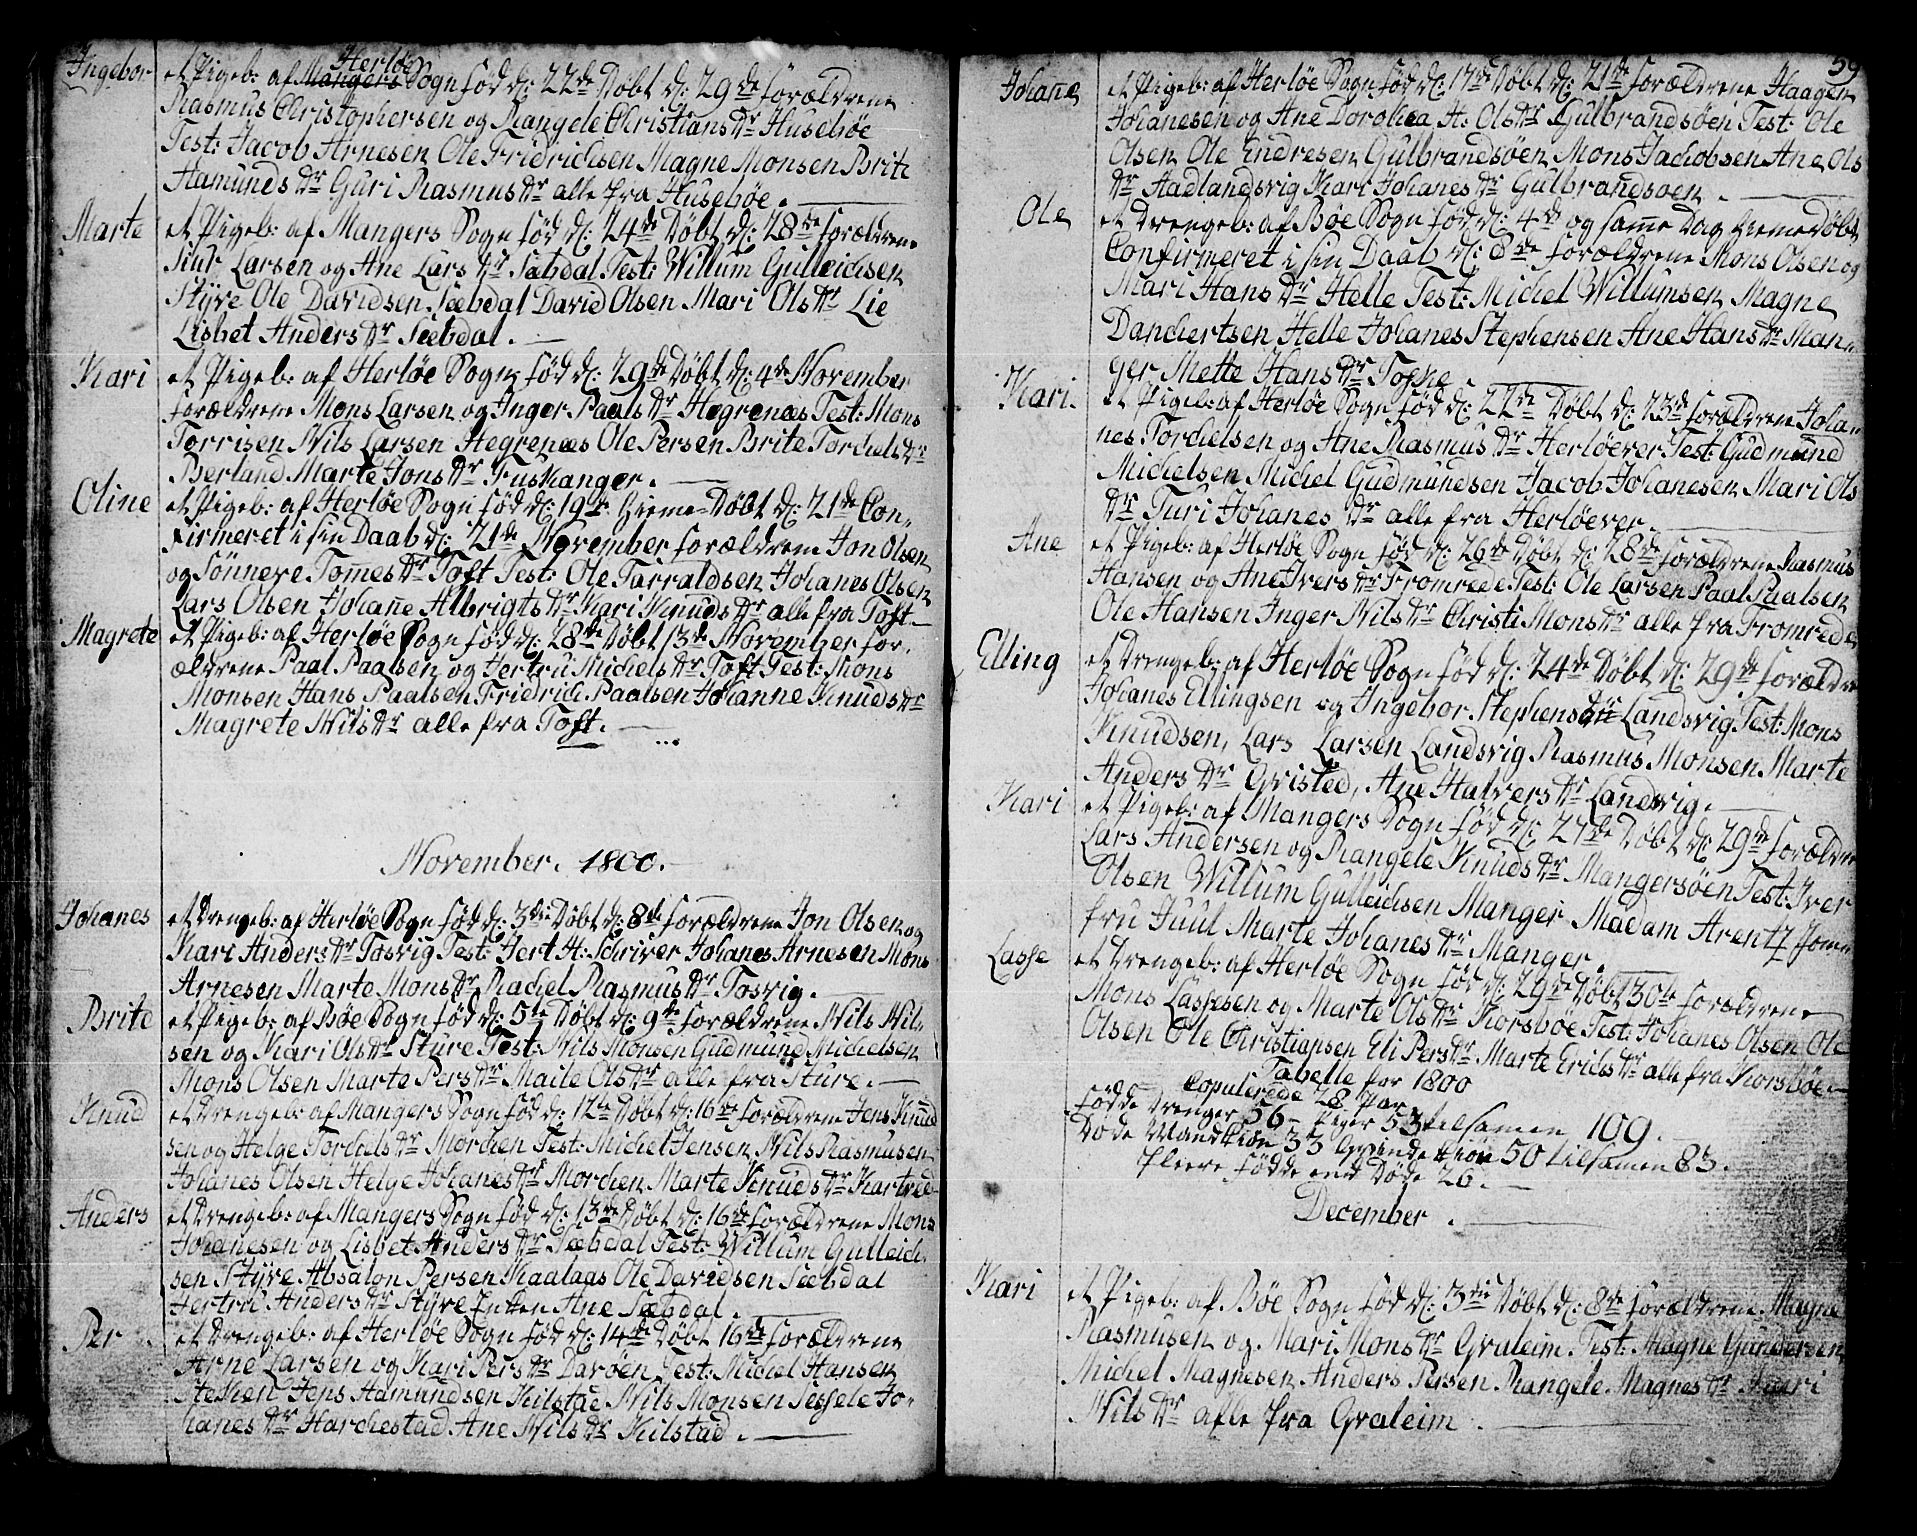 Herløe
Ingebor et Pigeb: af Mangers Sogn fød d: 22de Døbt d: 29de forældrene
Rasmus Christophersen og Rangele Christians Dr Husebøe
Test: Jacob Arnesen Ole Fridrichsen Magne Monsen Brite
Hamunds Dr Guri Rasmus Dr alle fra Husebøe.
Marte et Pigeb: af Mangers Sogn fød d: 24de Døbt d: 28de forældrene
Siur Larsen og Ane Lars Dr Sæbdal Test: Willum Gulleichsen
Styve Ole Davidsen Sæbdal David Olsen Mari Ols Dr Lie
Lisbet Anders Dr Sæbdal.
Kari et Pigeb: af Herløe Sogn fød d: 29de Døbt d: 4de November
forældrene Mons Larsen og Inger Paals Dr Hegrenæs Test: Mons
Torrisen Nils Larsen Hegrenæs Ole Persen Brite Torchels Dr
Berland Marte Jons Dr Fuskanger.
Oline et Pigeb: af Herløe Sogn fød d: 19de Hieme-Døbt d: 21de Con-
firmeret i sin Daab d: 21de November forældrene Jon Olsen
og Sönneve Tomes Dr Toft Test: Ole Tarraldsen Johanes Olsen
Lars Olsen Johane Albrigts Dr Kari Knuds Dr alle fra Toft.
Magrete et Pigeb: af Herløe Sogn fød d: 28de Døbt 13de November for-
ældrene Paal Paalsen og Hertru Michels Dr Toft Test: Mons
Monsen Hans Paalsen Fridrich Paalsen Johanne Knuds Dr
Magrete Nils Dr alle fra Toft.
November. 1800.
Johanes et Drengeb: af Herløe Sogn fød d: 3die Døbt d: 8de forældrene Jon Olsen og
Kari Anders Dr Tosvig Test: Hert H: Schriver Johanes Arnesen Mons
Arnesen Marte Mons Dr Rachel Rasmus Dr Tosvig.
Brite et Pigeb: af Bøe Sogn fød d: 5te Døbt d: 9de forældrene Nils Nil-
sen og Kari Ols Dr Sture Test: Nils Monsen Gudmund Michelsen
Mons Olsen Marte Pers Dr Maile Ols Dr alle fra Sture.
Knud et Drengeb: af Mangers Sogn fød d: 12te Døbt d: 16de forældrene Jens Knud
sen og Helge Torchels Dr Morchen Test: Michel Jensen Nils Rasmusen
Johanes Olsen Helge Johanes Dr Morchen Marte Knuds Dr Kartved
Anders et Drengeb: af Mangers Sogn fød d: 13de Døbt d: 16de forældrene Mons
Johanesen og Lisbet Anders Dr Sæbdal Test: Willum Gulleich-
sen Styve Absalon Persen Kaalaas Ole Davidsen Sæbdal
Hertru Anders Dr Styve Enken Ane Sæbdal.
Per et Drengeb: af Herløe Sogn fød d: 14de Døbt 16de forældrene
Arne Larsen og Kari Pers Dr Davøen Test: Michel Hansen
Jens Hamundsen Kilstad Nils Monsen Sessele Jo-
hanes Dr Harchestad Ane Nils Dr Kilstad.
59
Johane et Pigeb: af Herløe Sogn fød d: 17de Døbt d: 21de forældrene Haagen
Johanesen og Ane Dorothea H: Ols Dr Gulbrandsöen Test: Ole
Olsen Ole Endresen Gulbrandsöen Mons Jachobsen Ane Ols
Dr Aadlandsvig Kari Johanes Dr Gulbrandsøen.
Ole et Drengeb: af Bøe Sogn fød d: 4de og same Dag Hieme Døbt
Confirmeret i sin Daab d: 8de forældrene Mons Olsen og
Mari Hans Dr Helle Test: Michel Willumsen Magne
Danchertsen Helle Johanes Stephensen Ane Hans Dr Man-
ger Mette Hans Dr Toske.
Kari. et Pigeb: af Herløe Sogn fød d: 22de Døbt d: 23de forældrene Joha-
nes Torchelsen og Ane Rasmus Dr Herløever Test: Gudmund
Michelsen Michel Gudmundsen Jacob Johanesen Mari Ols
Dr Turi Johanes Dr alle fra Herløever.
Ane et Pigeb: af Herløe Sogn fød d: 26de Døbt d: 28de forældrene Rasmus
Hansen og Ane Ivers Dr Fromrede Test: Ole Larsen Paal Paalsen
Ole Hansen Inger Nils Dr Christi Mons Dr alle fra Fromrede
Elling et Drengeb: af Herløe Sogn fød d: 24de Døbt d: 29de forældre
Johanes Ellingsen og Ingebor Stephens Dr Landsvig Test: Mons
Knudsen, Lars Larsen Landsvig Rasmus Monsen Marte
Anders Dr Qvisted, Ane Halvers Dr Landsvig.
Kari et Pigeb: af Mangers Sogn fød d: 27de Døbt d: 29de forældre
Lars Andersen og Rangele Knuds Dr Mangersøen Test: Iver
Olsen Willum Gulleichsen Manger Madam Arentz Jom-
fru Juul Marte Johanes Dr Manger.
Lasse et Drengeb: af Herløe Sogn fød d: 29de Døbt 30te forældrene
Mons Lassesen og Marte Ols Dr Korsbøe Test: Johanes Olsen Ole
Olsen Ole Christiansen Eli Pers Dr Marte Erichs Dr alle fra Korsbøe.
Tabelle for 1800
Copulerede 28 Par
Fødde Drenger 56 - Piger 53 tilsamen 109.
Døde Mandkiøn 33 Qvindekiøn 50 tilsamen 83.
fleere fødde end Døde 26.
December.
Kari et Pigeb: af Bøe Sogn fød d: 3die Døbt d: 8de forældrene Magne
Rasmusen og Mari Mons Dr Qvaleim. Test: Magne Gundersen
Michel Magnesen Anders Persen Rangele Magnes Dr Kari
Nils Dr alle fra Qvaleim.